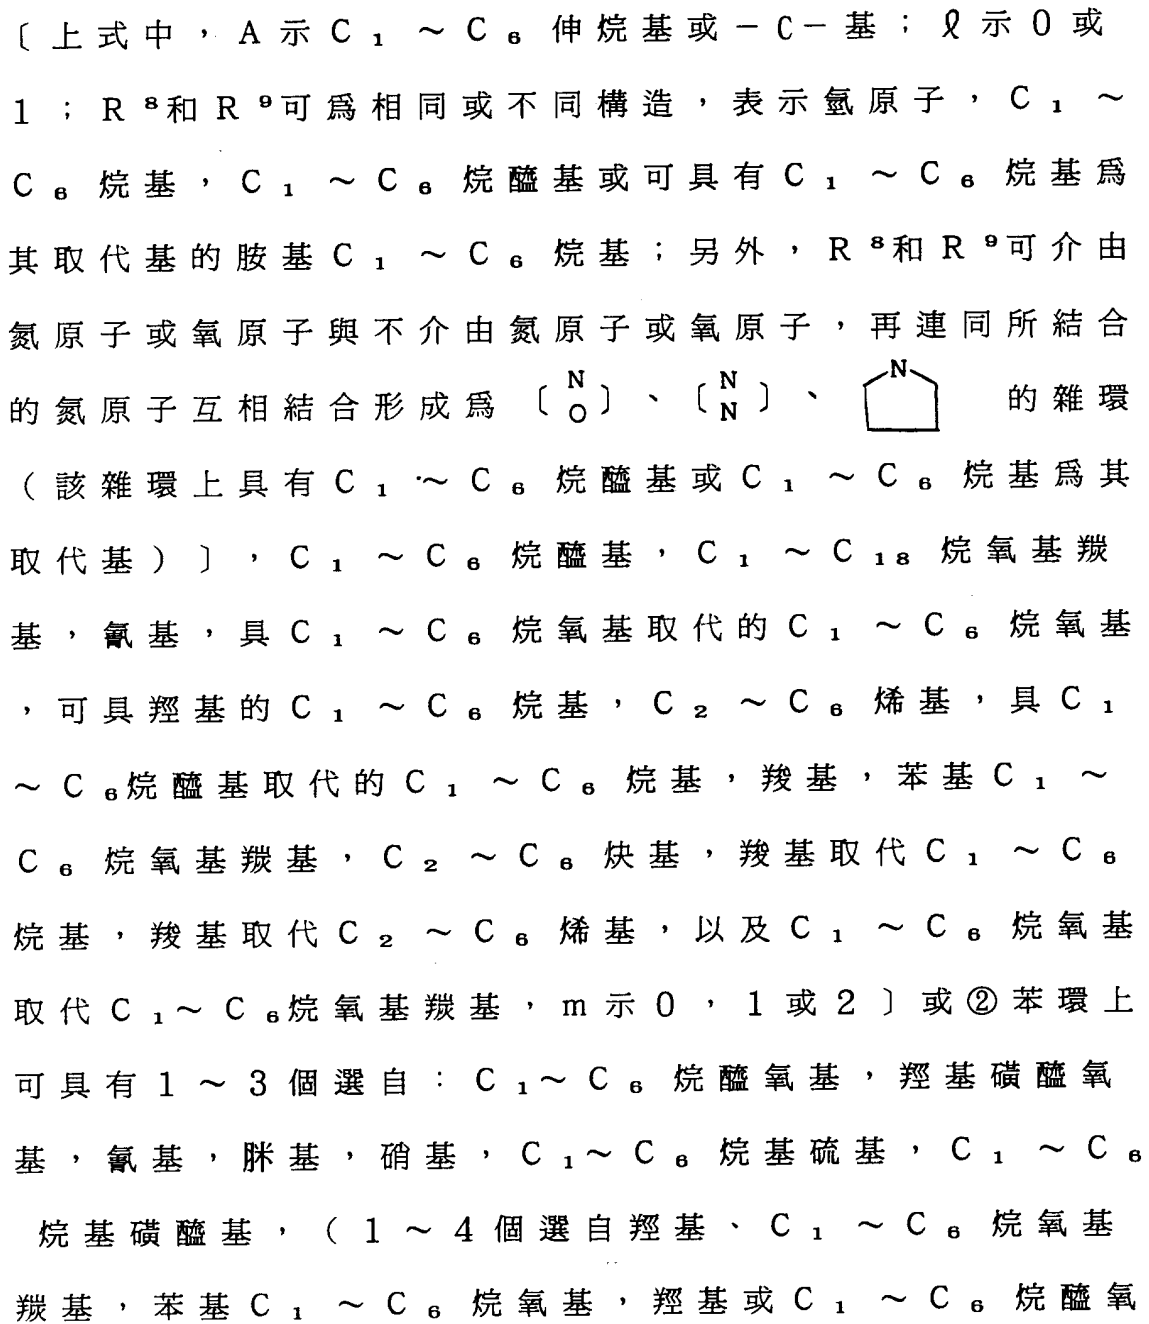 〔上式中，A示C₁～C₆伸烷基或－C－基；ℓ示0或
1；R⁸和R⁹可爲相同或不同構造，表示氫原子，C₁～
C₆烷基，C₁～C₆烷醯基或可具有C₁～C₆烷基爲
其取代基的胺基C₁～C₆烷基；另外，R⁸和R⁹可介由
氮原子或氧原子與不介由氮原子或氧原子，再連同所結合
的氮原子互相結合形成爲〔N O〕、〔N N〕、N 的雜環
（該雜環上具有C₁～C₆烷醯基或C₁～C₆烷基爲其
取代基）〕，C₁～C₆烷醯基，C₁～C₁₈烷氧基羰
基，氰基，具C₁～C₆烷氧基取代的C₁～C₆烷氧基
，可具羥基的C₁～C₆烷基，C₂～C₆烯基，具C₁
～C₆烷醯基取代的C₁～C₆烷基，羧基，苯基C₁～
C₆烷氧基羰基，C₂～C₆炔基，羧基取代C₁～C₆
烷基，羧基取代C₂～C₆烯基，以及C₁～C₆烷氧基
取代C₁～C₆烷氧基羰基，m示0，1或2〕或②苯環上
可具有1～3個選自：C₁～C₆烷醯氧基，羥基磺醯氧
基，氰基，脒基，硝基，C₁～C₆烷基硫基，C₁～C₆
烷基磺醯基，（1～4個選自羥基、C₁～C₆烷氧基
羰基，苯基C₁～C₆烷氧基，羥基或C₁～C₆烷醯氧